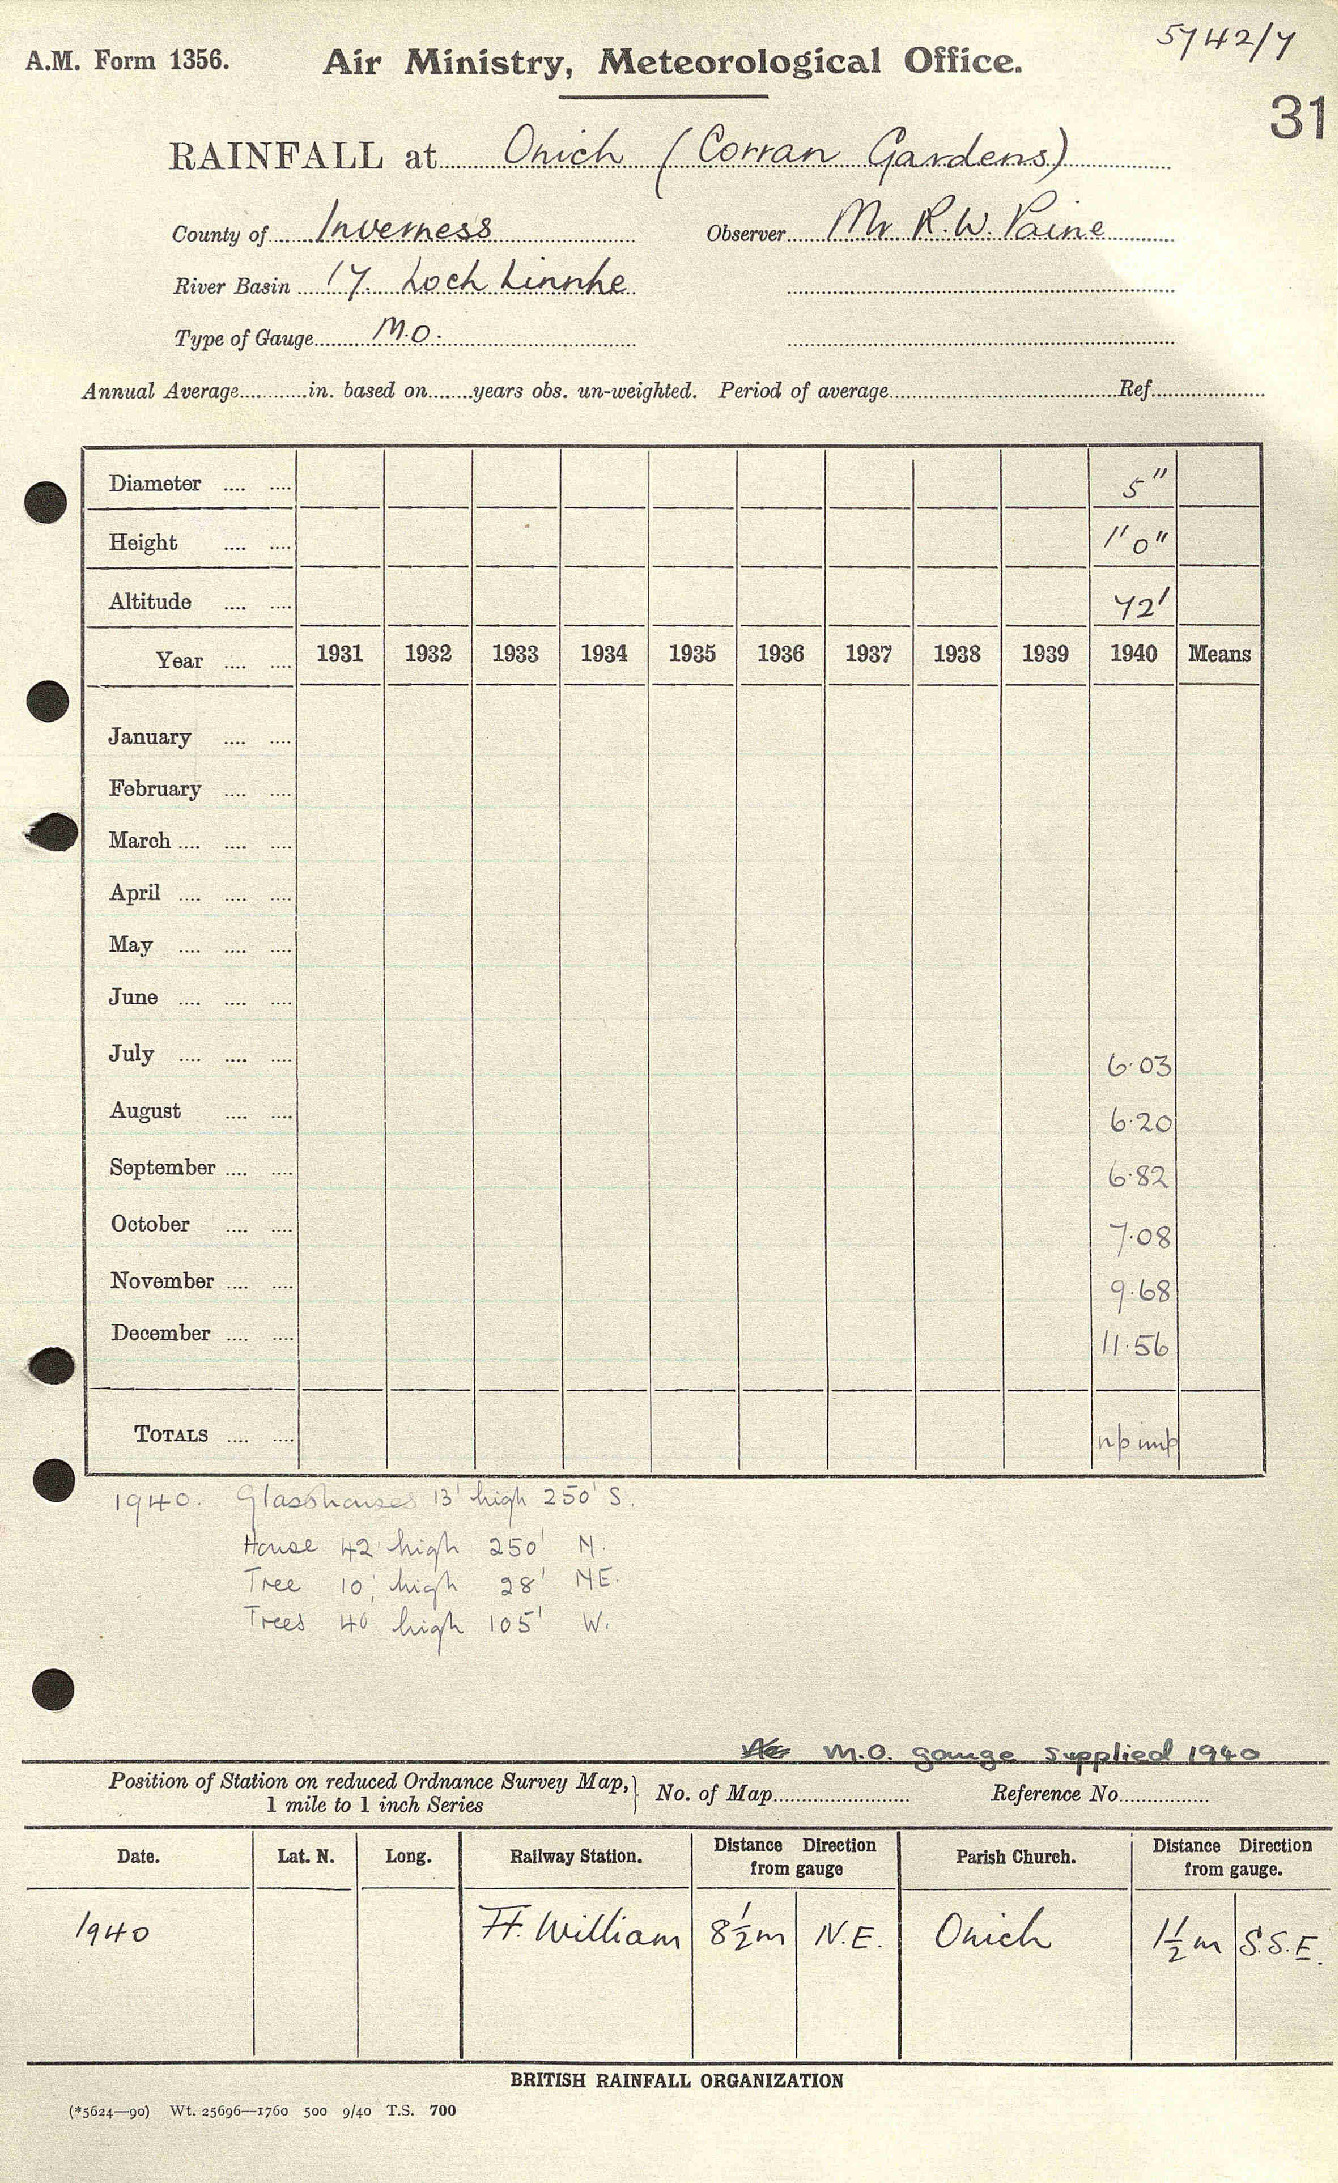 5742/7
A.M. Form 1356. Air Ministry, Meteorological Office.
31
RAINFALL at Onich (Corran Gardens)
County of Inverness Observer Mr R.W. Paine
River Basin 17. Loch Linnhe
Type of Gauge M.O.
Annual Average in. based on years obs. un-weighted. Period of average Ref.
Diameter 5"
Height 1' 0"
Altitude 72'
Year 1931 1932 1933 1934 1935 1936 1937 1938 1939 1940 Means
January
February
March
April
May
June
July 6.03
August 6.20
September 6.82
October 7.08
November 9.68
December 11.56
TOTALS
1940. Glasshouses 13' high 250' S.
House 42' high 250' N.
Tree 10' high 28' NE.
Trees 40' high 105' W.
M.O. gauge supplied 1940
Position of Station on reduced Ordnance Survey Map, No. of Map Reference No.
1 mile to 1 inch Series
Date. Lat. N. Long. Railway Station. Distance Direction from gauge Parish Church. Distance Direction from gauge.
1940 Ft. William 8½m N.E. Onich 1½m S.S.E.
BRITISH RAINFALL ORGANIZATION
(*5624—90) Wt. 25696—1760 500 9/40 T.S. 700